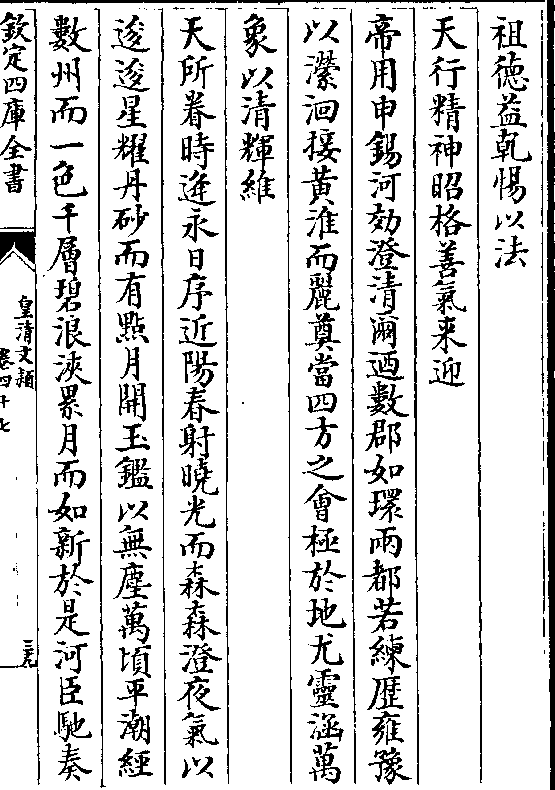 祖德益乾惕以法
天行精神昭格善氣来迎
帝用申錫河効澄清爾迺數郡如環兩都若練歴雍豫
以瀠洄接黄淮而麗奠當四方之會極於地尤靈涵萬
象以清輝維
天所眷時逢永日序近陽春射曉光而森森澄夜氣以
逡逡星耀丹砂而有點月開玉鑑以無塵萬頃平潮經
數州而一色千層碧浪浹累月而如新於是河臣馳奏
欽定四庫全書
皇清文頴
卷四十七
三九